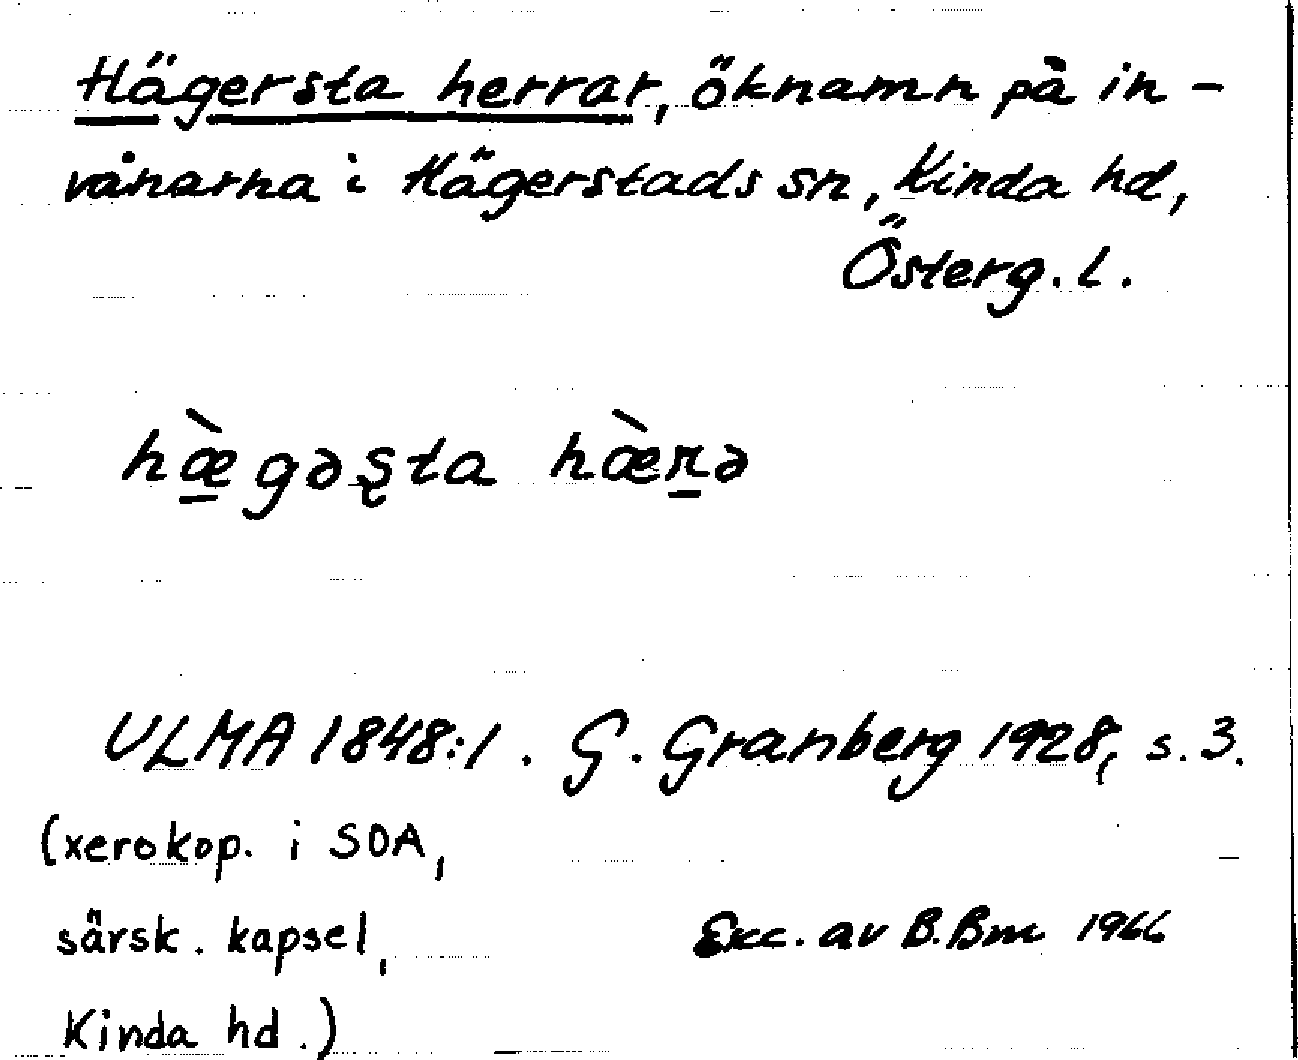 Hägersta herrar, öknamn på in-
vånarna i Hägerstads sn, Kinda hd,
Österg. l.
hæ̠̀gəʂta hæ̀ɴ̠ə
ULMA 1848:1. G. Granberg 1928, s. 3.
(xerokop. i SOA,
särsk. kapsel,
Kinda hd.)
Exc. av B. Bm 1966